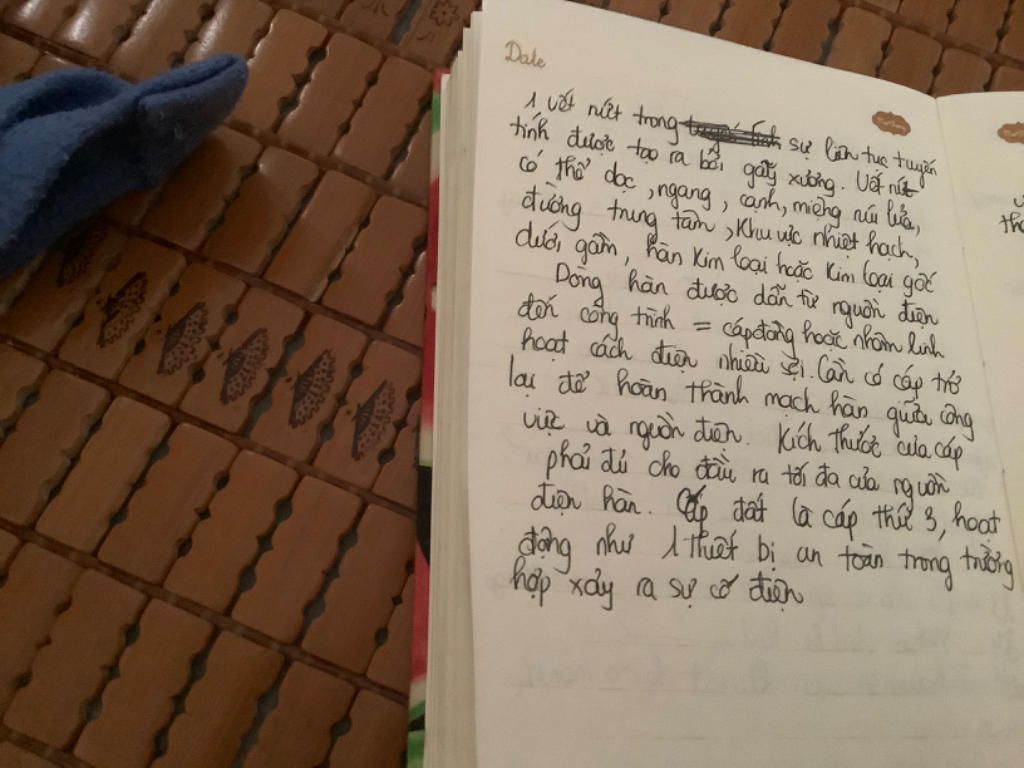 Date
1 vết nứt trong sự liên tục tuyến
tính được tạo ra bởi gãy xương. Vết nứt
có thể dọc, ngang, cạnh, miệng núi lửa,
đường trung tâm, Khu vực nhiệt hạch,
dưới gầm, hàn Kim loại hoặc Kim loại gốc
Dòng hàn được dẫn từ nguồn điện
đến công trình = cáp đồng hoặc nhôm linh
hoạt cách điện nhiều sợi. Cần có cáp trở
lại để hoàn thành mạch hàn giữa công
việc và nguồn điện. Kích thước của cáp
phải đủ cho đầu ra tối đa của nguồn
điện hàn. Cáp đất là cáp thứ 3, hoạt
động như 1 thiết bị an toàn trong trường
hợp xảy ra sự cố điện